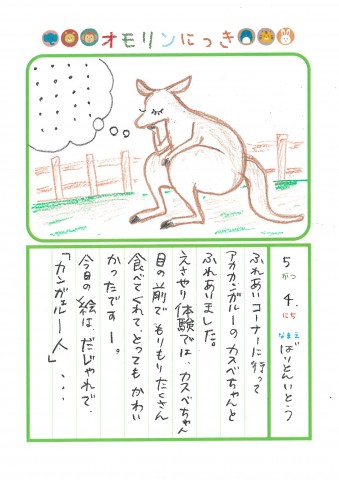 オモリンにっき
5がつ4.にち なまえ ばりとんいとう
ふれあいコーナーに行って
アカカンガルーのカスベちゃんと
ふれあいました。
えさやり体験では、カスベちゃん
目の前でもりもりたくさん
食べてくれて、とってもかわい
かったですー。
今日の絵は、だじゃれで、
「カンガェルー人」...